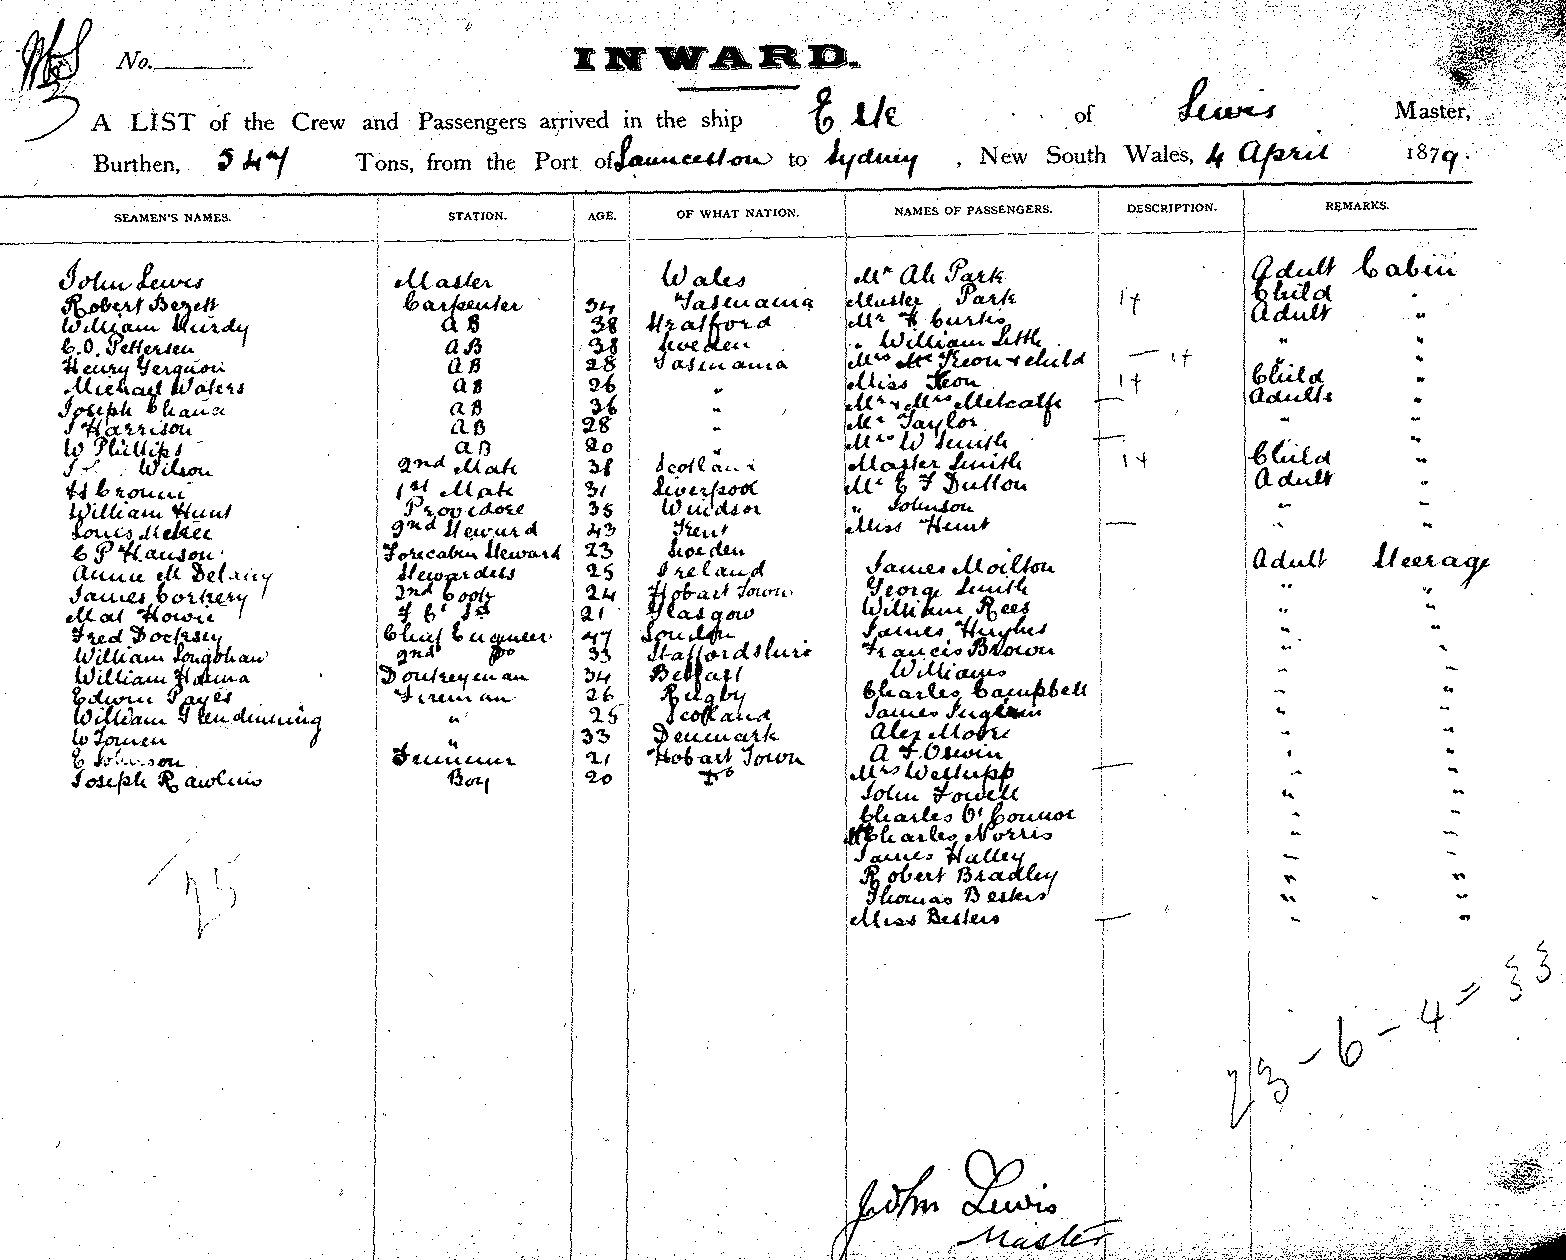 No.
INWARD.
A LIST of the Crew and Passengers arrived in the ship of Lewis Master,
Burthen, 547 Tons, from the Port of Launceston to Sydney, New South Wales, 4 April 1879.
SEAMEN'S NAMES. STATION. AGE. OF WHAT NATION. NAMES OF PASSENGERS. DESCRIPTION. REMARKS.
John Lewis Master Wales Mr Park Adult Cabin
Robert Carpenter 34 Tasmania Master Park 14 Child "
William AB 38 Stratford Mr Curtis Adult "
C.O. Pettersen AB 38 Sweden " William Little " "
Henry AB 28 Tasmania Mrs & child — 14 " "
Michael Waters AB 26 " Miss 14 Child "
Joseph AB 36 " Mr & Mrs Metcalfe — Adults "
Harrison AB 28 " Mr Taylor " "
W Phillips AB 20 " Mrs W Smith — "
Wilson 2nd Mate 38 Scotland Master Smith 14 Child "
1st Mate 31 Liverpool Mr E F Dutton Adult "
William Hunt Providore 35 Windsor " Johnson " "
Louis 2nd Steward 43 Miss Hunt — " "
C P Hanson Forecabin Steward 23 Sweden
Annie M Delaney Stewardess 25 Ireland James Moilton Adult Steerage
James Corkery 2nd Cook 24 Hobart Town George Smith " "
Mat Howie 21 Glasgow William Rees " "
Fred Chief Engineer 47 London James Hughes " "
William 2nd Do 33 Staffordshire Francis Brown " "
William Hanna Donkeyman 34 Belfast Williams " "
Edwin Fireman 26 Rugby Charles Campbell " "
William Glendinning " 25 Scotland James Ingram " "
W " 33 Denmark Alex Moore " "
E Johnson 21 Hobart Town A " "
Joseph Rawlins Boy 20 Do Mrs — " "
John " "
Charles O'Connor " "
Charles Norris " "
James Halley " "
Robert Bradley " "
Thomas Besters " "
Miss Besters — " "
25
23 - 6 - 4 = 33
John Lewis
Master